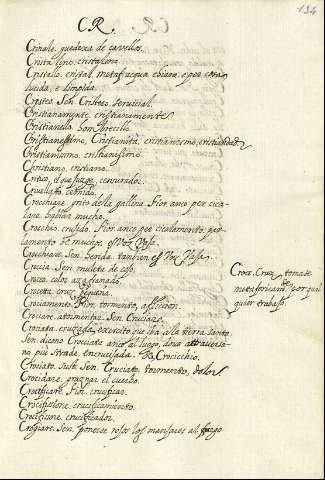 CR.
134
Crinale, guedexa de cavellos.
Crista lino cristalino
Cristallo. cristal metaf. acqua chiara, o per cosa
lucida, e limpida.
Cristeo, Sen. Cristeo servicial.
Cristianamente, cristianamente
Cristianello bom brecillo
Cristianesimo, Cristianità, cristianismo, cristiandad
Cristianissimo, cristianissimo.
Christiano, cristiano.
Critico, el que juzga, censurador.
Crivellato, cernido.
Crocchiare, grito della gallina Fior. anco per cica-
lare, hablar mucho.
Crocchio cruxido. Fior. anco per cicalamento, par-
lamento de mucha, es Voz Vasa.
Crocchiare, Sen. herida, tambien es Voz Vasa.
Croccia, Sen. muleta de coxo.
Croceo, color azafranado.
Crocetta, cruz pequeña.
Crociamento, Fior. tormento, afliccion.
Crociare, atormentar, Sen. Cruciare.
Crociata cruzada, exercito que iba alla tierra santa.
Sen. dicono Crociata anco al luogo, dove attraversa-
no più strade, encruzada. Va. Crocicchio.
Crociato, sust. Sen. Cruciato, tormento, dolor
Crocidare, graznar el cuerdo.
Crocifigere, Fior. crucificar.
Crocifissione, crucificamiento.
Crocifissore, crucificador.
Crogiare, Sen. ponerse roxos los manjares al fuego
Croce, Cruz, tomase
metaforicamte por qual
quier trabajo.